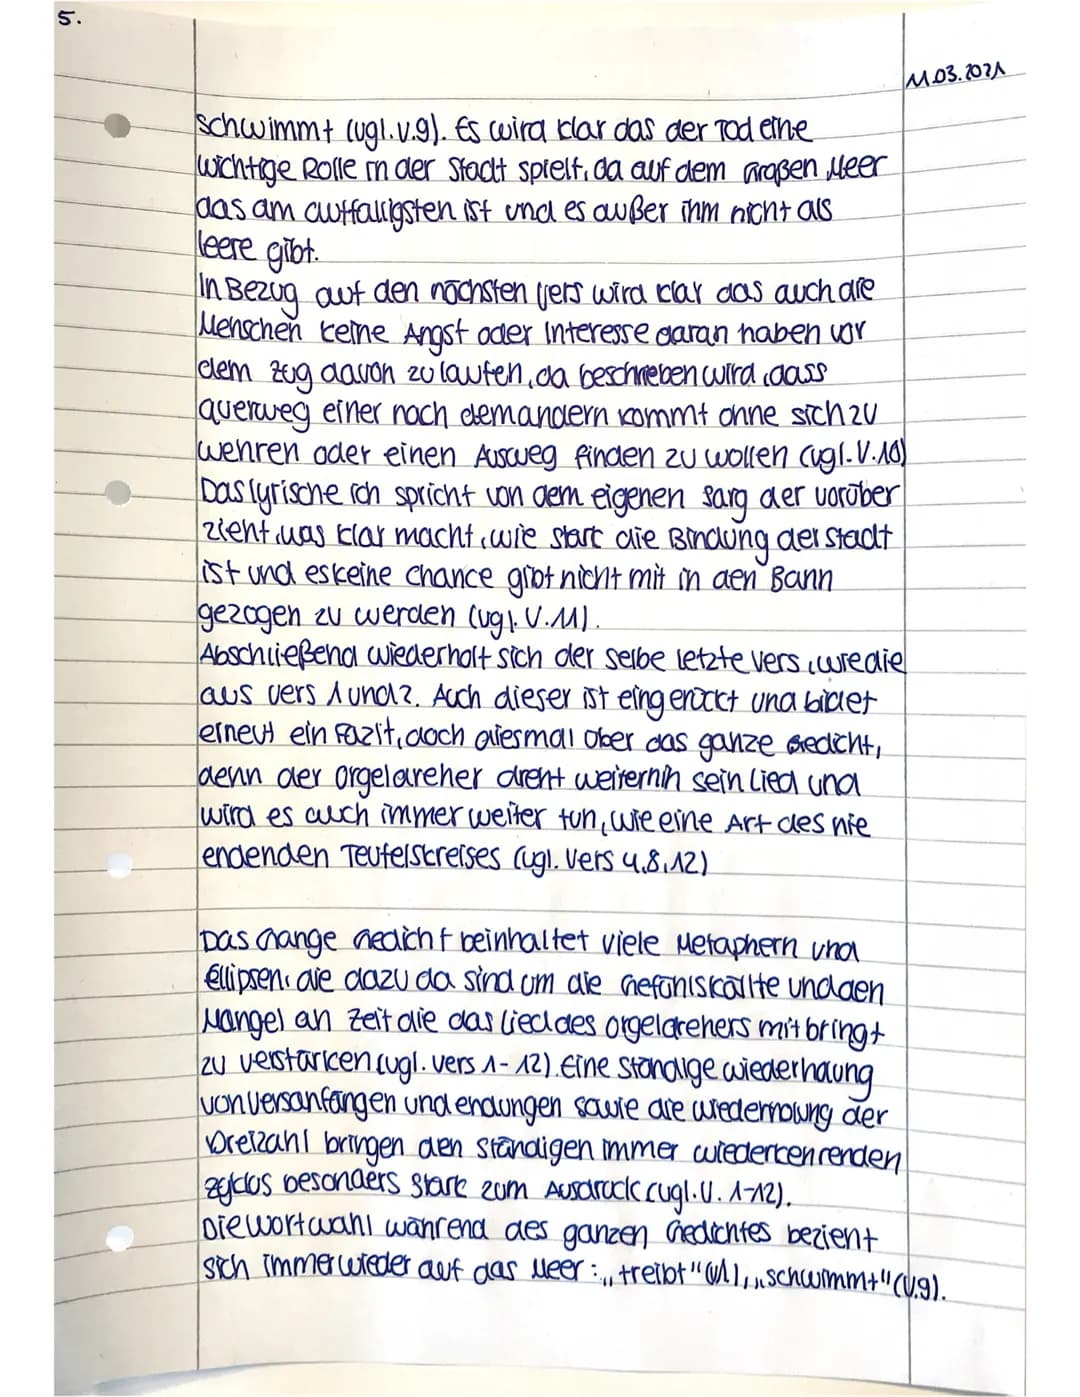 5.
11.03.2021
schwimmt (vgl.v.9). Es wird klar das der Tod eine
wichtige Rolle in der Stadt spielt, da auf dem großen Meer
das am auffälligsten ist und es außer ihm nicht als
leere gibt.
In Bezug auf den nächsten Vers wird klar das auch die
Menschen keine Angst oder Interesse daran haben vor
dem Zug davon zu laufen, da beschrieben wird, dass
querweg einer nach dem andern kommt ohne sich zu
wehren oder einen Ausweg finden zu wollen (vgl. V.10)
Das lyrische ich spricht von dem eigenen Sarg der vorüber
zieht, was klar macht, wie stark die Bindung der Stadt
ist und es keine Chance gibt nicht mit in den Bann
gezogen zu werden (vgl. V.11).
Abschließend wiederholt sich der selbe letzte Vers, wie die
aus Vers 1 und 2. Auch dieser ist eingerückt und bildet
erneut ein Fazit, doch diesmal über das ganze Gedicht,
denn der Orgeldreher dreht weiterhin sein Lied und
wird es auch immer weiter tun, wie eine Art des nie
endenden Teufelskreises (vgl. Vers 4,8,12)
Das Gange Gedicht beinhaltet viele Metaphern und
Ellipsen, die dazu da sind um die Gefühlskälte und den
Mangel an Zeit die das Lied des Orgeldrehers mit bringt
zu verstärken (vgl. Vers 1-12). Eine ständige wiederhaung
von Versanfängen und endungen sowie die wiederholung der
Dreizahl bringen den ständigen immer wiederkehrenden
Zyklus besonders stark zum Ausdruck (vgl. V. 1-12).
Die Wortwahl während des ganzen Gedichtes bezieht
sich immer wieder auf das Meer: „treibt" (V.1), „schwimmt" (V.9).